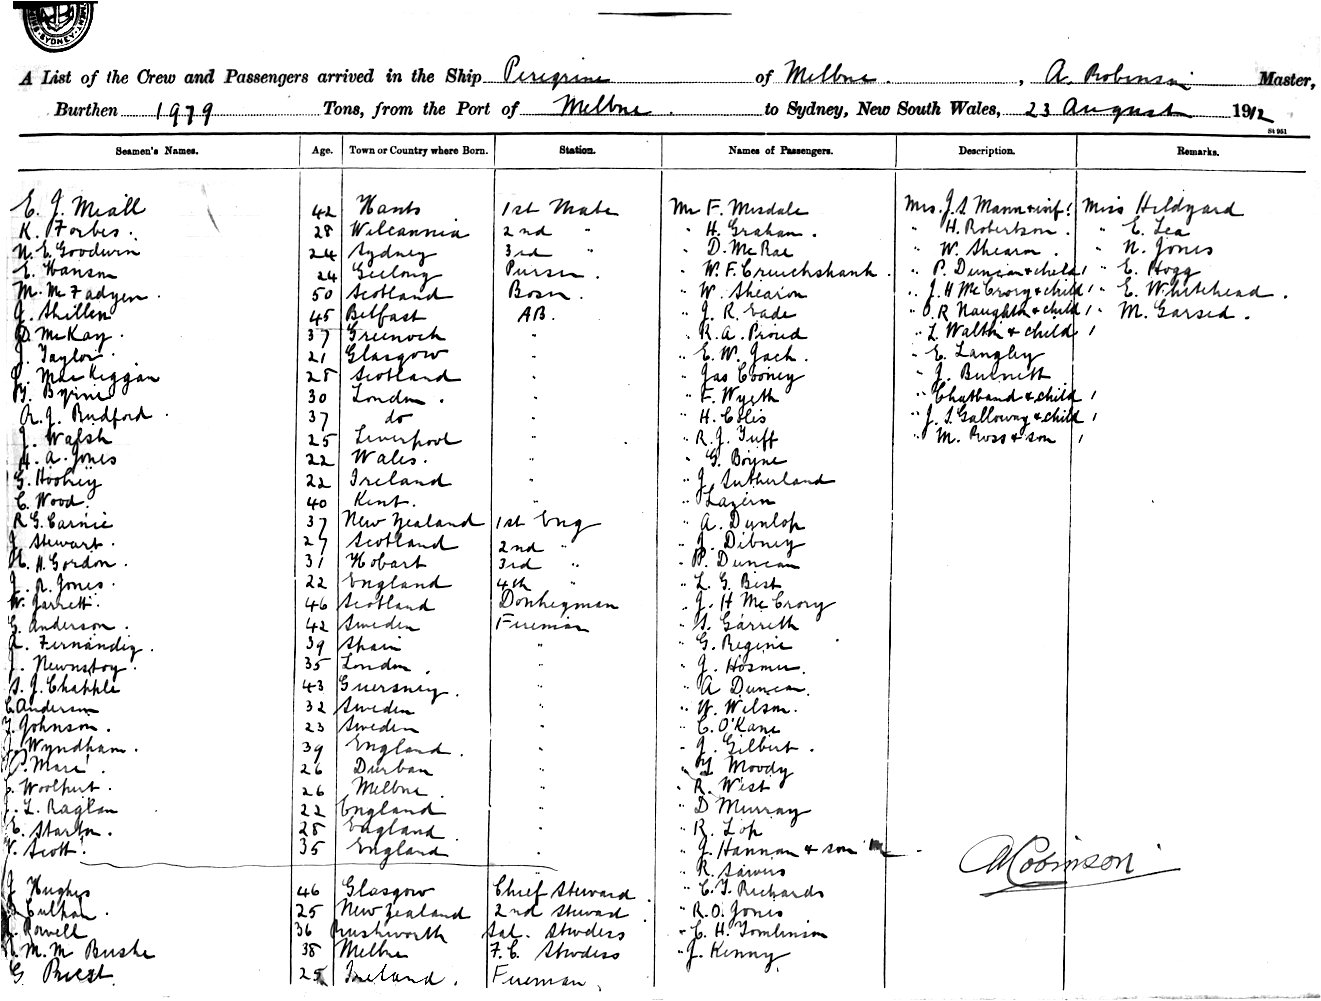 SYDNEY
A List of the Crew and Passengers arrived in the Ship Peregrine of Melbne. , A. Robinson Master,
Burthen 1979 Tons, from the Port of Melbne. to Sydney, New South Wales, 23 August 1912
St 951
Seamen's Names. Age. Town or Country where Born. Station. Names of Passengers. Description. Remarks.
E. J. Miall 42 Hants 1st Mate Mr F. Misdale Mrs. J. S. Mann & inf. 1 Miss Hildyard
K. Forbes. 28 Wilcannia 2nd " " H. Graham. " H. Robertson. " E. Lea
N. E. Goodwin 24 Sydney 3rd " " D. McRae " W. Shearn. " N. Jones
E. Hanson 24 Geelong Purser. " W. F. Cruickshank. " P. Duncan & child 1 " E. Hogg
M. McFadyen. 50 Scotland Bosn. " W. Shearon " J. H McCrory & child 1 " E. Whitehead.
J. Shillen 45 Belfast AB. " J. R. Eade " O. R Naughth & child 1 " M. Garsed.
D. McKay. 37 Greenock " " R. A. Proud " L. Walth & child 1
J. Taylor. 21 Glasgow " " E. W. Jack. " E. Langley
J. MacKiggan 28 Scotland " " Jas Cooney " J. Burnett
Byrine 30 London. " " F. Wyeth " Chatband & child 1
A. J. Rudford. 37 do " " H. Coles " J. S. Galloway & child 1
J. Walsh 25 Liverpool " " R. J. Tuff " M. Ross & son 1
H. A. Jones 22 Wales. " " G. Boyne
G. Hookey 22 Ireland " " J. Sutherland
C. Wood. 40 Kent. " " Lazern
R G. Carnie 37 New Zealand 1st Eng " A. Dunlop
J. Stewart. 27 Scotland 2nd " " J. Dibney
H. H. Gordon. 31 Hobart 3rd " " P. Duncan
J. R. Jones. 22 England 4th " " L. G. Best
W. Jarrett. 46 Scotland Donkeyman " J. H McCrory
G. Anderson. 42 Sweden Fireman " S. Garreth
A. Fernandiz. 39 Spain " " G. Regine
J. Newnstoy. 35 London. " " J. Hosmer
S. J. Chapple 43 Guersney. " " A Duncan.
C. Anderson 32 Sweden " " W. Wilson.
J. Johnson. 23 Sweden " " C. O'Kane
J. Wyndham. 39 England. " " J. Gilbert.
Mare. 26 Durban " " Moody
Woolhert. 26 Melbne. " " R. West
L. Raglan 22 England " " D Murray
E. Starton. 28 England. " " R. Lop
W. Scott. 35 England " " J. Hannan & son
" R. Sawers
A Robinson
J Hughes 46 Glasgow Chief Steward. " C. J. Richards
Culhan. 25 New Zealand 2nd Steward " R. O. Jones
Powell 36 Rushworth Sal. Stwdess " C. H. Tomlinson
M. M Bushe 38 Melbne F. C. Stwdess " J. Kenny.
G. Priest. 25 Ireland. Fireman.